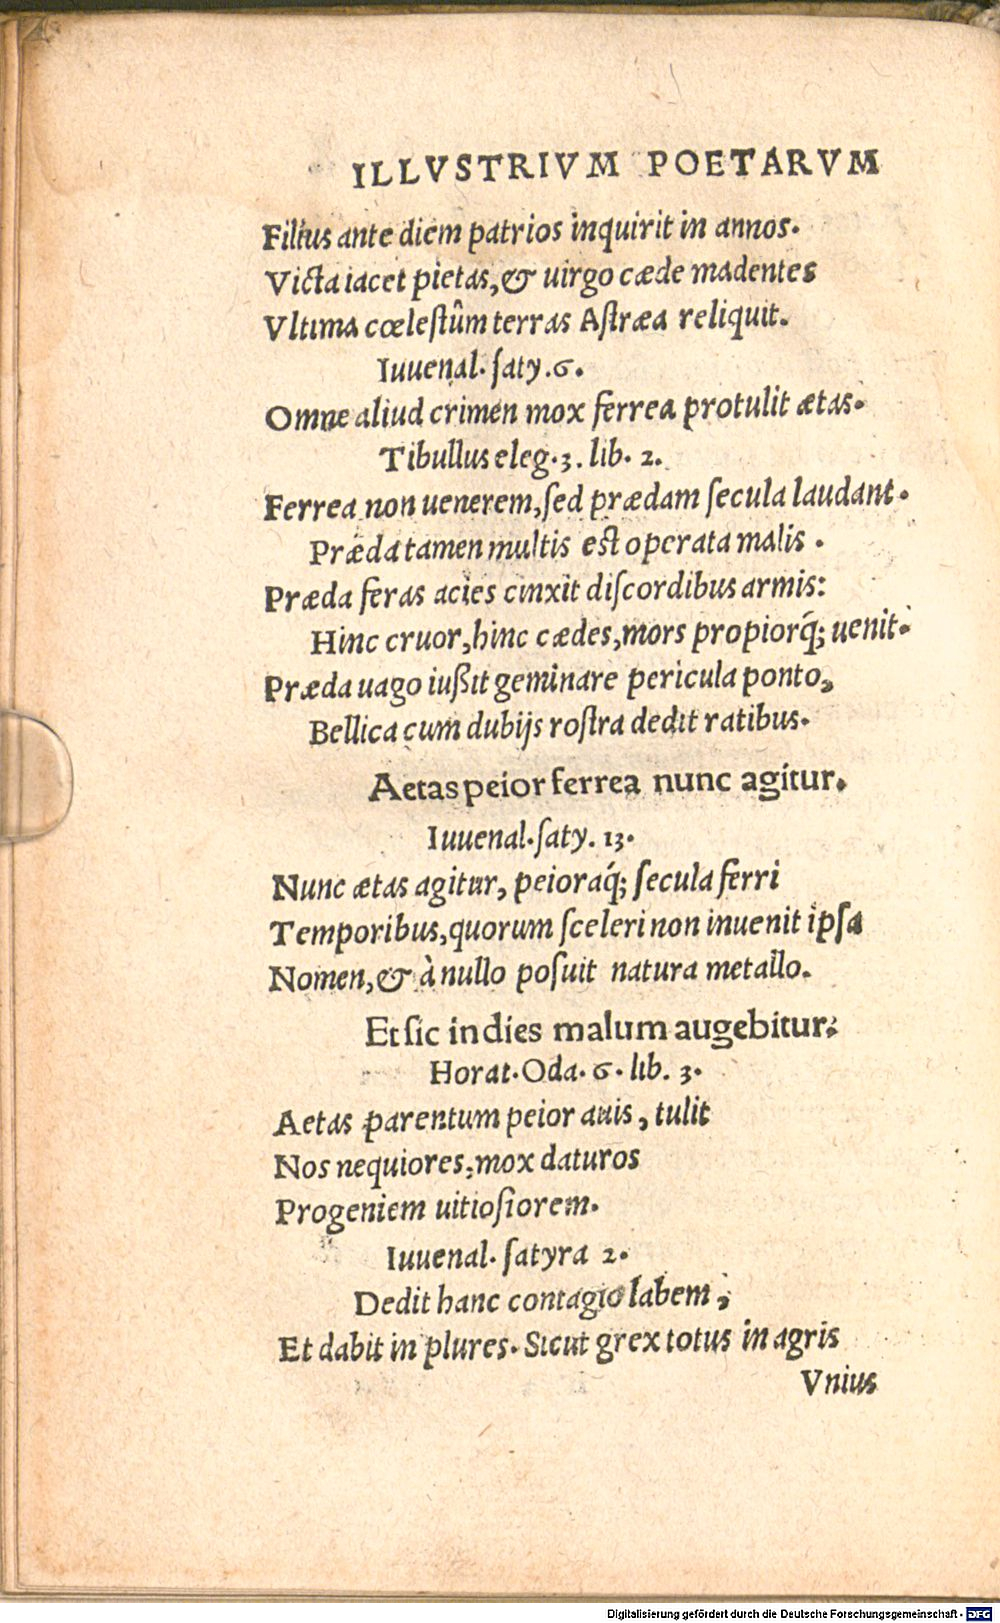 ILLVSTRIVM POETARVM
Filius ante diem patrios inquirit in annos.
Victa iacet pietas, & uirgo cæde madentes
Vltima cœleſtûm terras Aſtræa reliquit.
Iuuenal. ſaty. 6.
Omne aliud crimen mox ferrea protulit ætas.
Tibullus eleg. 3. lib. 2.
Ferrea non uenerem, ſed prædam ſecula laudant.
Præda tamen multis eſt operata malis.
Præda feras acies cinxit diſcordibus armis:
Hinc cruor, hinc cædes, mors propiorq́; uenit.
Præda uago iußit geminare pericula ponto,
Bellica cum dubijs roſtra dedit ratibus.
Aetas peior ferrea nunc agitur.
Iuuenal. ſaty. 13.
Nunc ætas agitur, peioraq́; ſecula ferri
Temporibus, quorum ſceleri non inuenit ipſa
Nomen, & à nullo poſuit natura metallo.
Et ſic in dies malum augebitur.
Horat. Oda. 6. lib. 3.
Aetas parentum peior auis, tulit
Nos nequiores, mox daturos
Progeniem uitioſiorem.
Iuuenal. ſatyra 2.
Dedit hanc contagio labem,
Et dabit in plures. Sicut grex totus in agris
Vnius
Digitalisierung gefördert durch die Deutsche Forschungsgemeinschaft - DFG